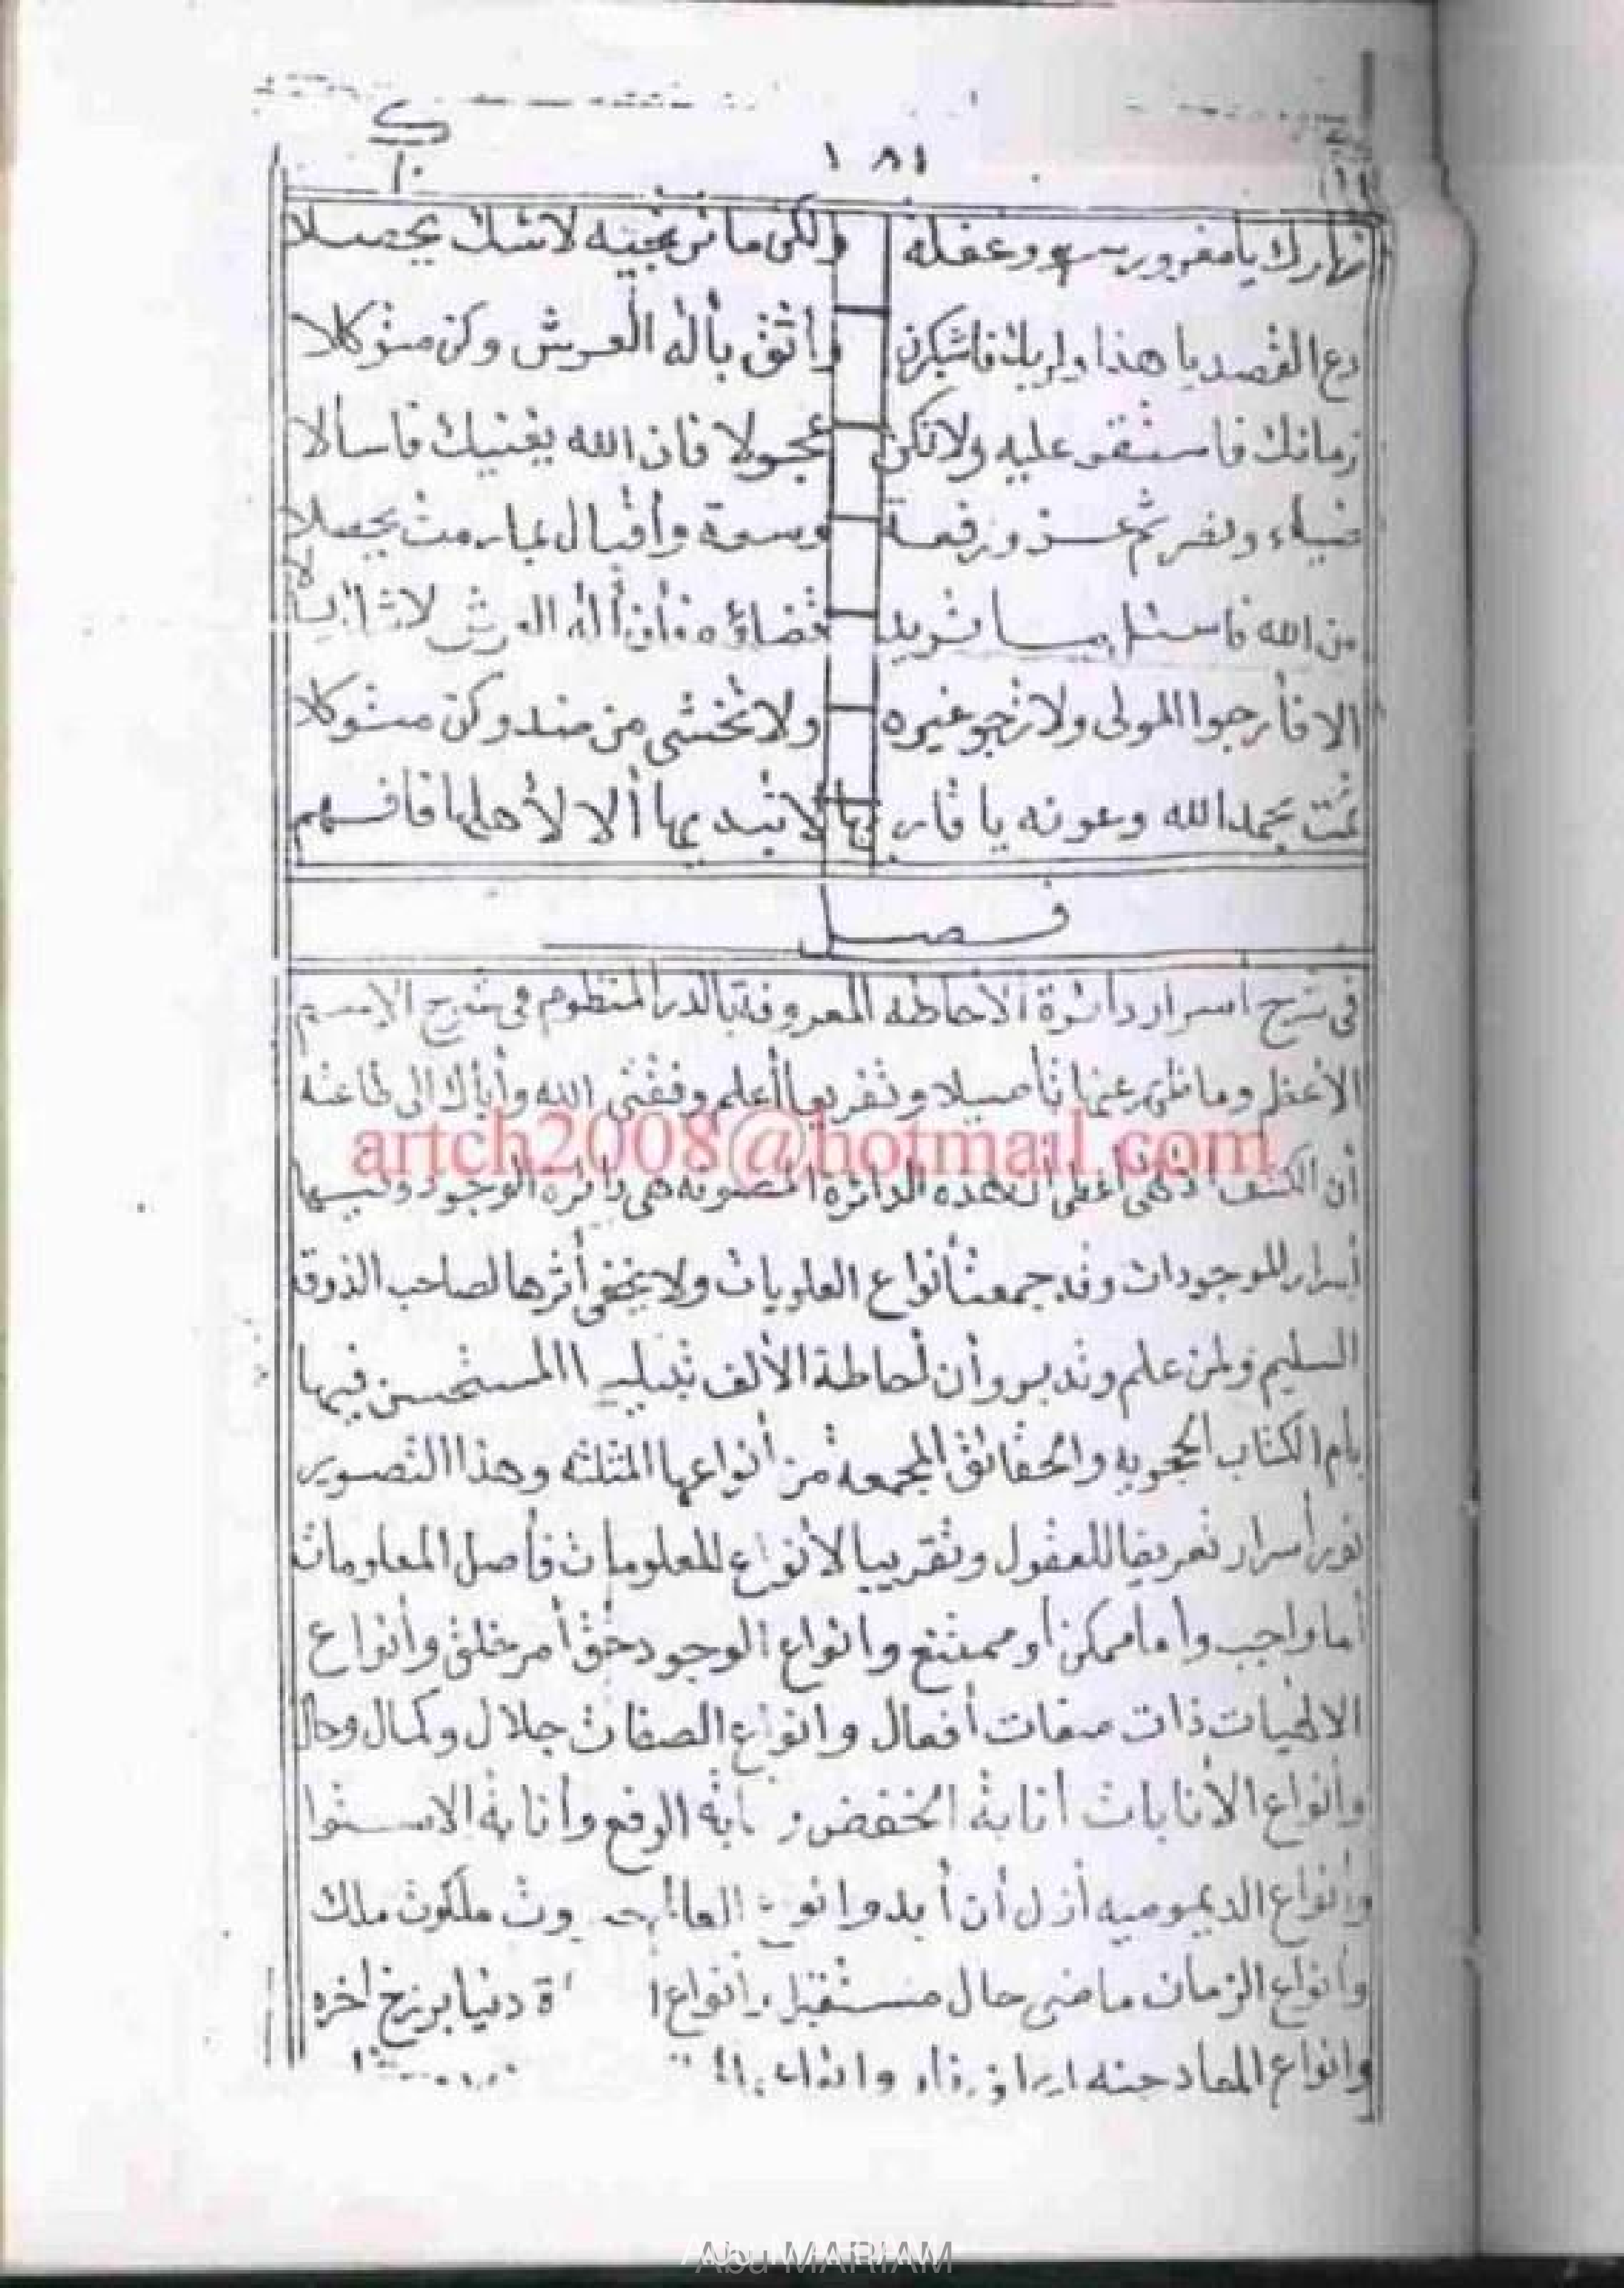 ١٨١
نهارك يا مغرور سهو وغفلة ولكن ما ترتجيه لاشك يحصلا
دع القصد يا هذا ولربك فاشكرن واثق بأله العرش وكن متوكلا
زمانك فاستقم عليه ولاتكن عجولا فان الله يغنيك فاسألا
ضياء ونصر ثم عز ورفعة وسعة وأقبال بما رمت يحصلا
من الله فاسئل بما تريد قضاؤه فأن أله العرش
الا فأرجوا المولى ولا ترجو غيره ولا تخشى من ضد وكن متوكلا
تمت بحمد الله وعونه يا قارىء بها لا تبديها ألا لأهلها فافهم
فصل
فى شرح اسرار دائرة الأحاطه المعروفة بالدر المنظوم فى شرح الاسم
الأعظم وما ظهر عنها تأصيلا وتفريعا أعلم وفقنى الله وأياك الى طاعته
artch2008@hotmail.com
أن الكشف هذه الدائرة المصونه هى دائرة الوجود وليسها
أسرار الموجودات وقد جمعت أنواع العلويات ولا يخفى أثرها لصاحب الذوق
السليم ولمن علم وتدبر وأن لحاطة الألف المستحسن فيها
بأم الكتاب والحقائق المجمعة من أنواعها المثلثه وهذا التصوير
نور أسرار تعريفا للعقول وتقريبا لأنواع المعلومات فأصل المعلومات
أما واجب وأما ممكن أو ممتنع وانواع الوجود حق أمر خلق وأنواع
الالهيات ذات صفات أفعال وانواع الصفات جلال وكمال وجمال
وأنواع الأنابات أنابة الخفض وأنابة الرفع وأنابة الاستوا
وأنواع الديموميه أزل أن أبد وانواع العالم ملكوت ملك
وأنواع الزمان ماضى حال مستقبل وأنواع دنيا برزخ اخره
وانواع المعاد جنه
Abu MARIAM